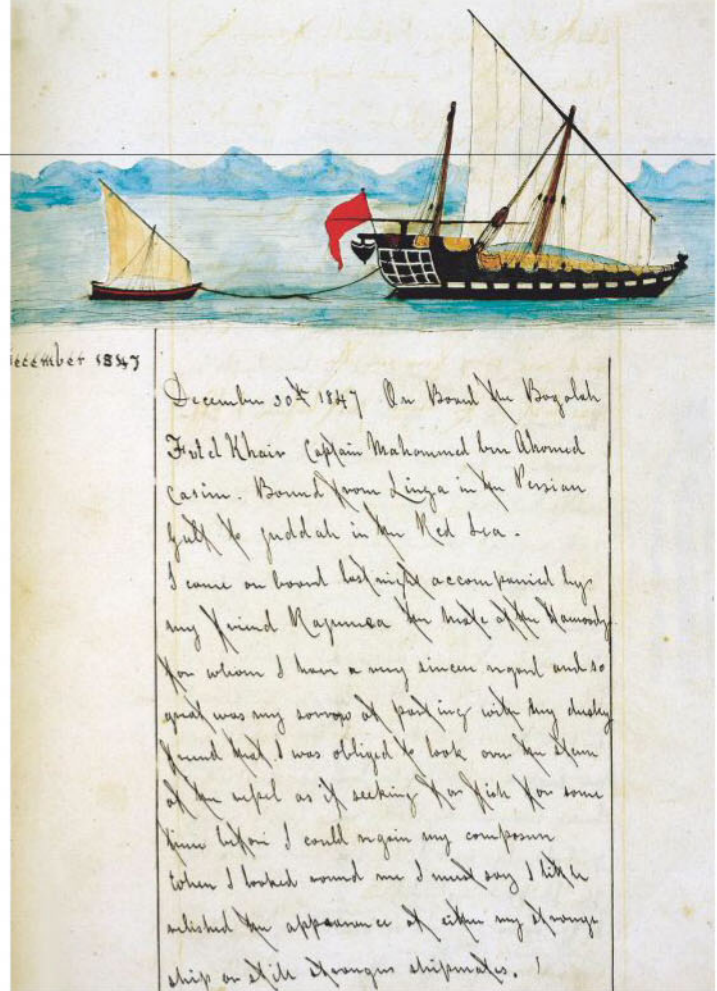 December 1847
December 30th 1847 On Board the Bogolah
Futel Khair Captain Mahommed ben Ahomed
Casim. Bound from Linga in the Persian
Gulf to Juddah in the Red Sea.
I came on board last night accompanied by
my friend Rajumea the mate of the
for whom I have a very sincere regard and so
great was my sorrow at parting with my dusky
friend that I was obliged to look over the stern
of the vessel as if seeking for fish for some
time before I could regain my composure
When I looked around me I must say I little
relished the appearance of either my strange
ship or still stranger shipmates. I